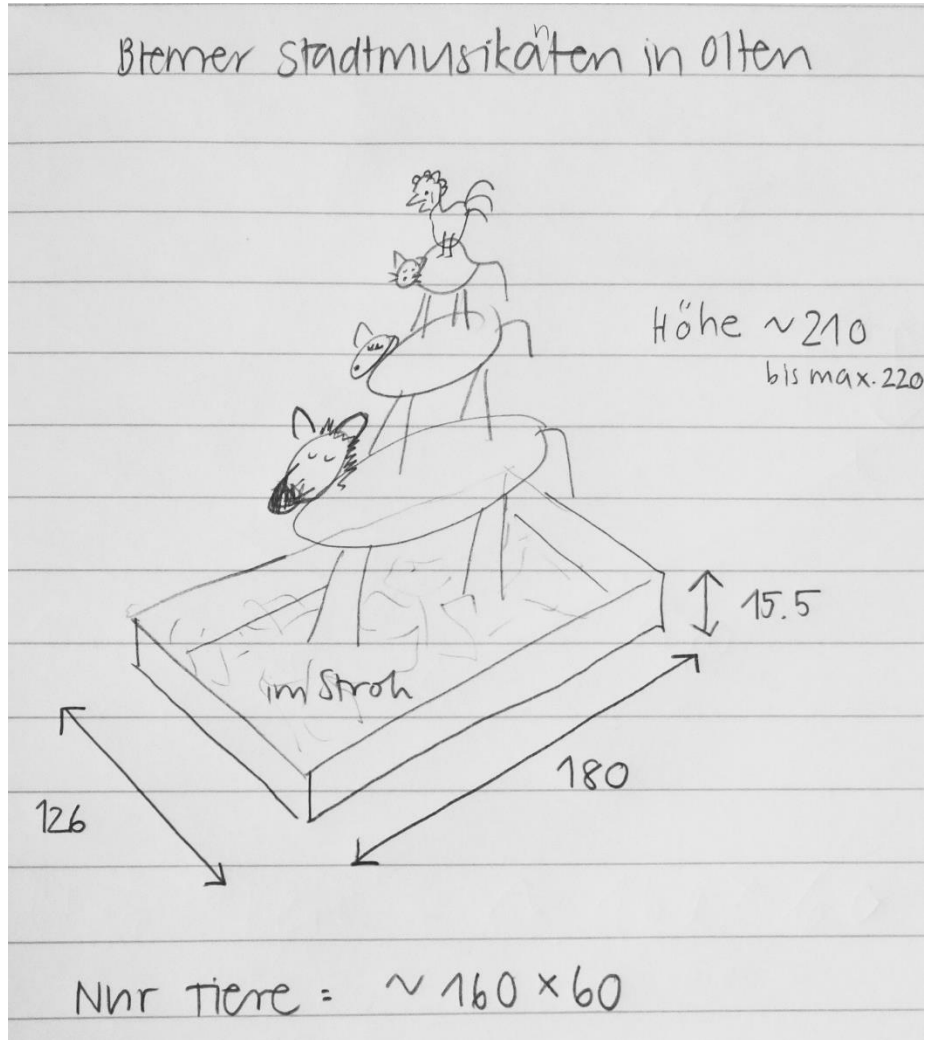 Bremer Stadtmusikanten in Olten
Höhe ~210
bis max. 220
15.5
im Stroh
180
126
Nur Tiere = ~ 160 × 60